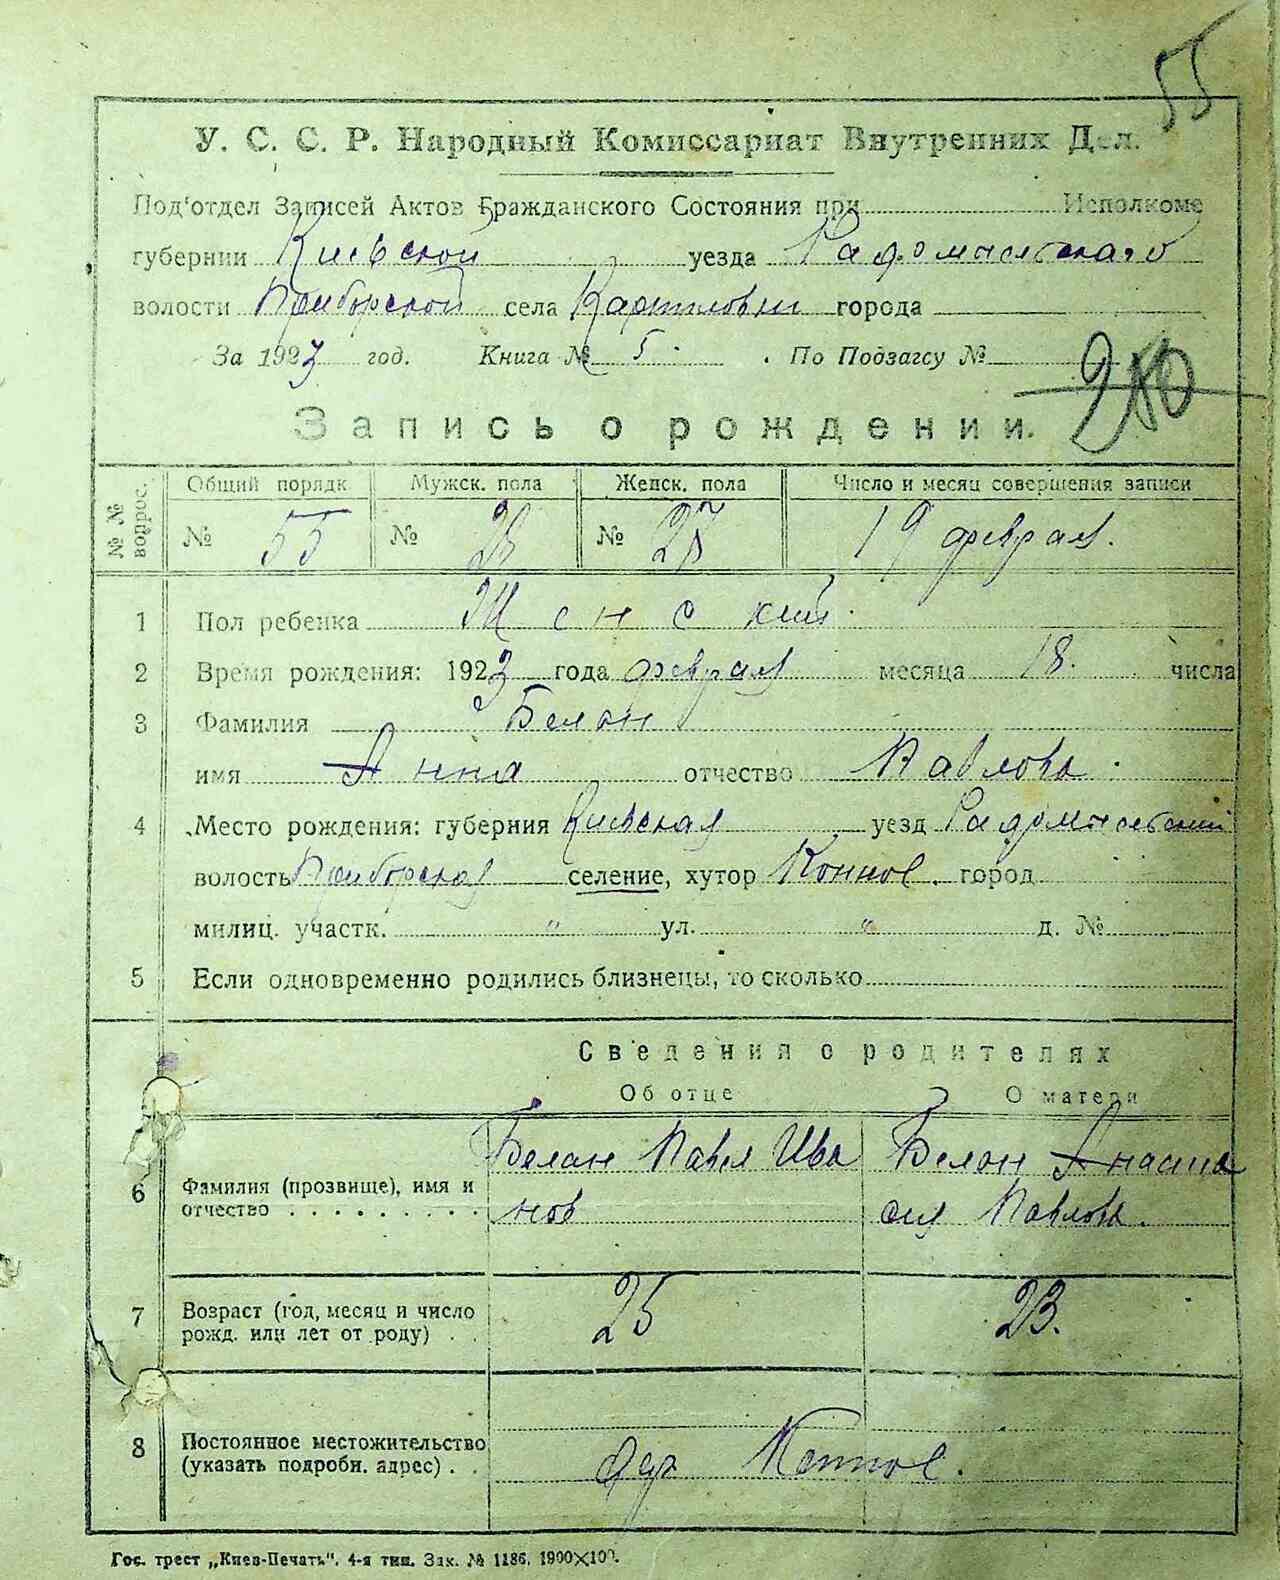 55
У. С. С. Р. Народный Комиссариат Внутренних Дел.
Под'отдел Записей Актов Гражданского Состояния при Исполкоме
губернии Киевской уезда Радомысльскаго
волости Приборской села города
За 1923 год. Книга № 5. По Подзагсу №
210
Запись о рождении.
№ № вопрос. Общий порядк. Мужск. пола Женск. пола Число и месяц совершения записи
№ 55 № 28 № 27 19 февраля.
1 Пол ребенка Женский.
2 Время рождения: 1923 года февраля месяца 18. числа
3 Фамилия Белан
имя Анна отчество Павлова.
4 Место рождения: губерния Киевская уезд Радомысльский
волость Приборская селение, хутор город
милиц. участк. " ул. " д. №
5 Если одновременно родились близнецы, то сколько
Сведения о родителях
Об отце О матери
6 Фамилия (прозвище), имя и Белан Павел Ива Белан Анаста
отчество . . . . . . . . . . нов сия Павлова.
7 Возраст (год, месяц и число 25 23.
рожд. или лет от роду) . .
8 Постоянное местожительство
(указать подробн. адрес) . . дер.
Гос. трест „Киев-Печать". 4-я тип. Зак. № 1186. 1900×100.